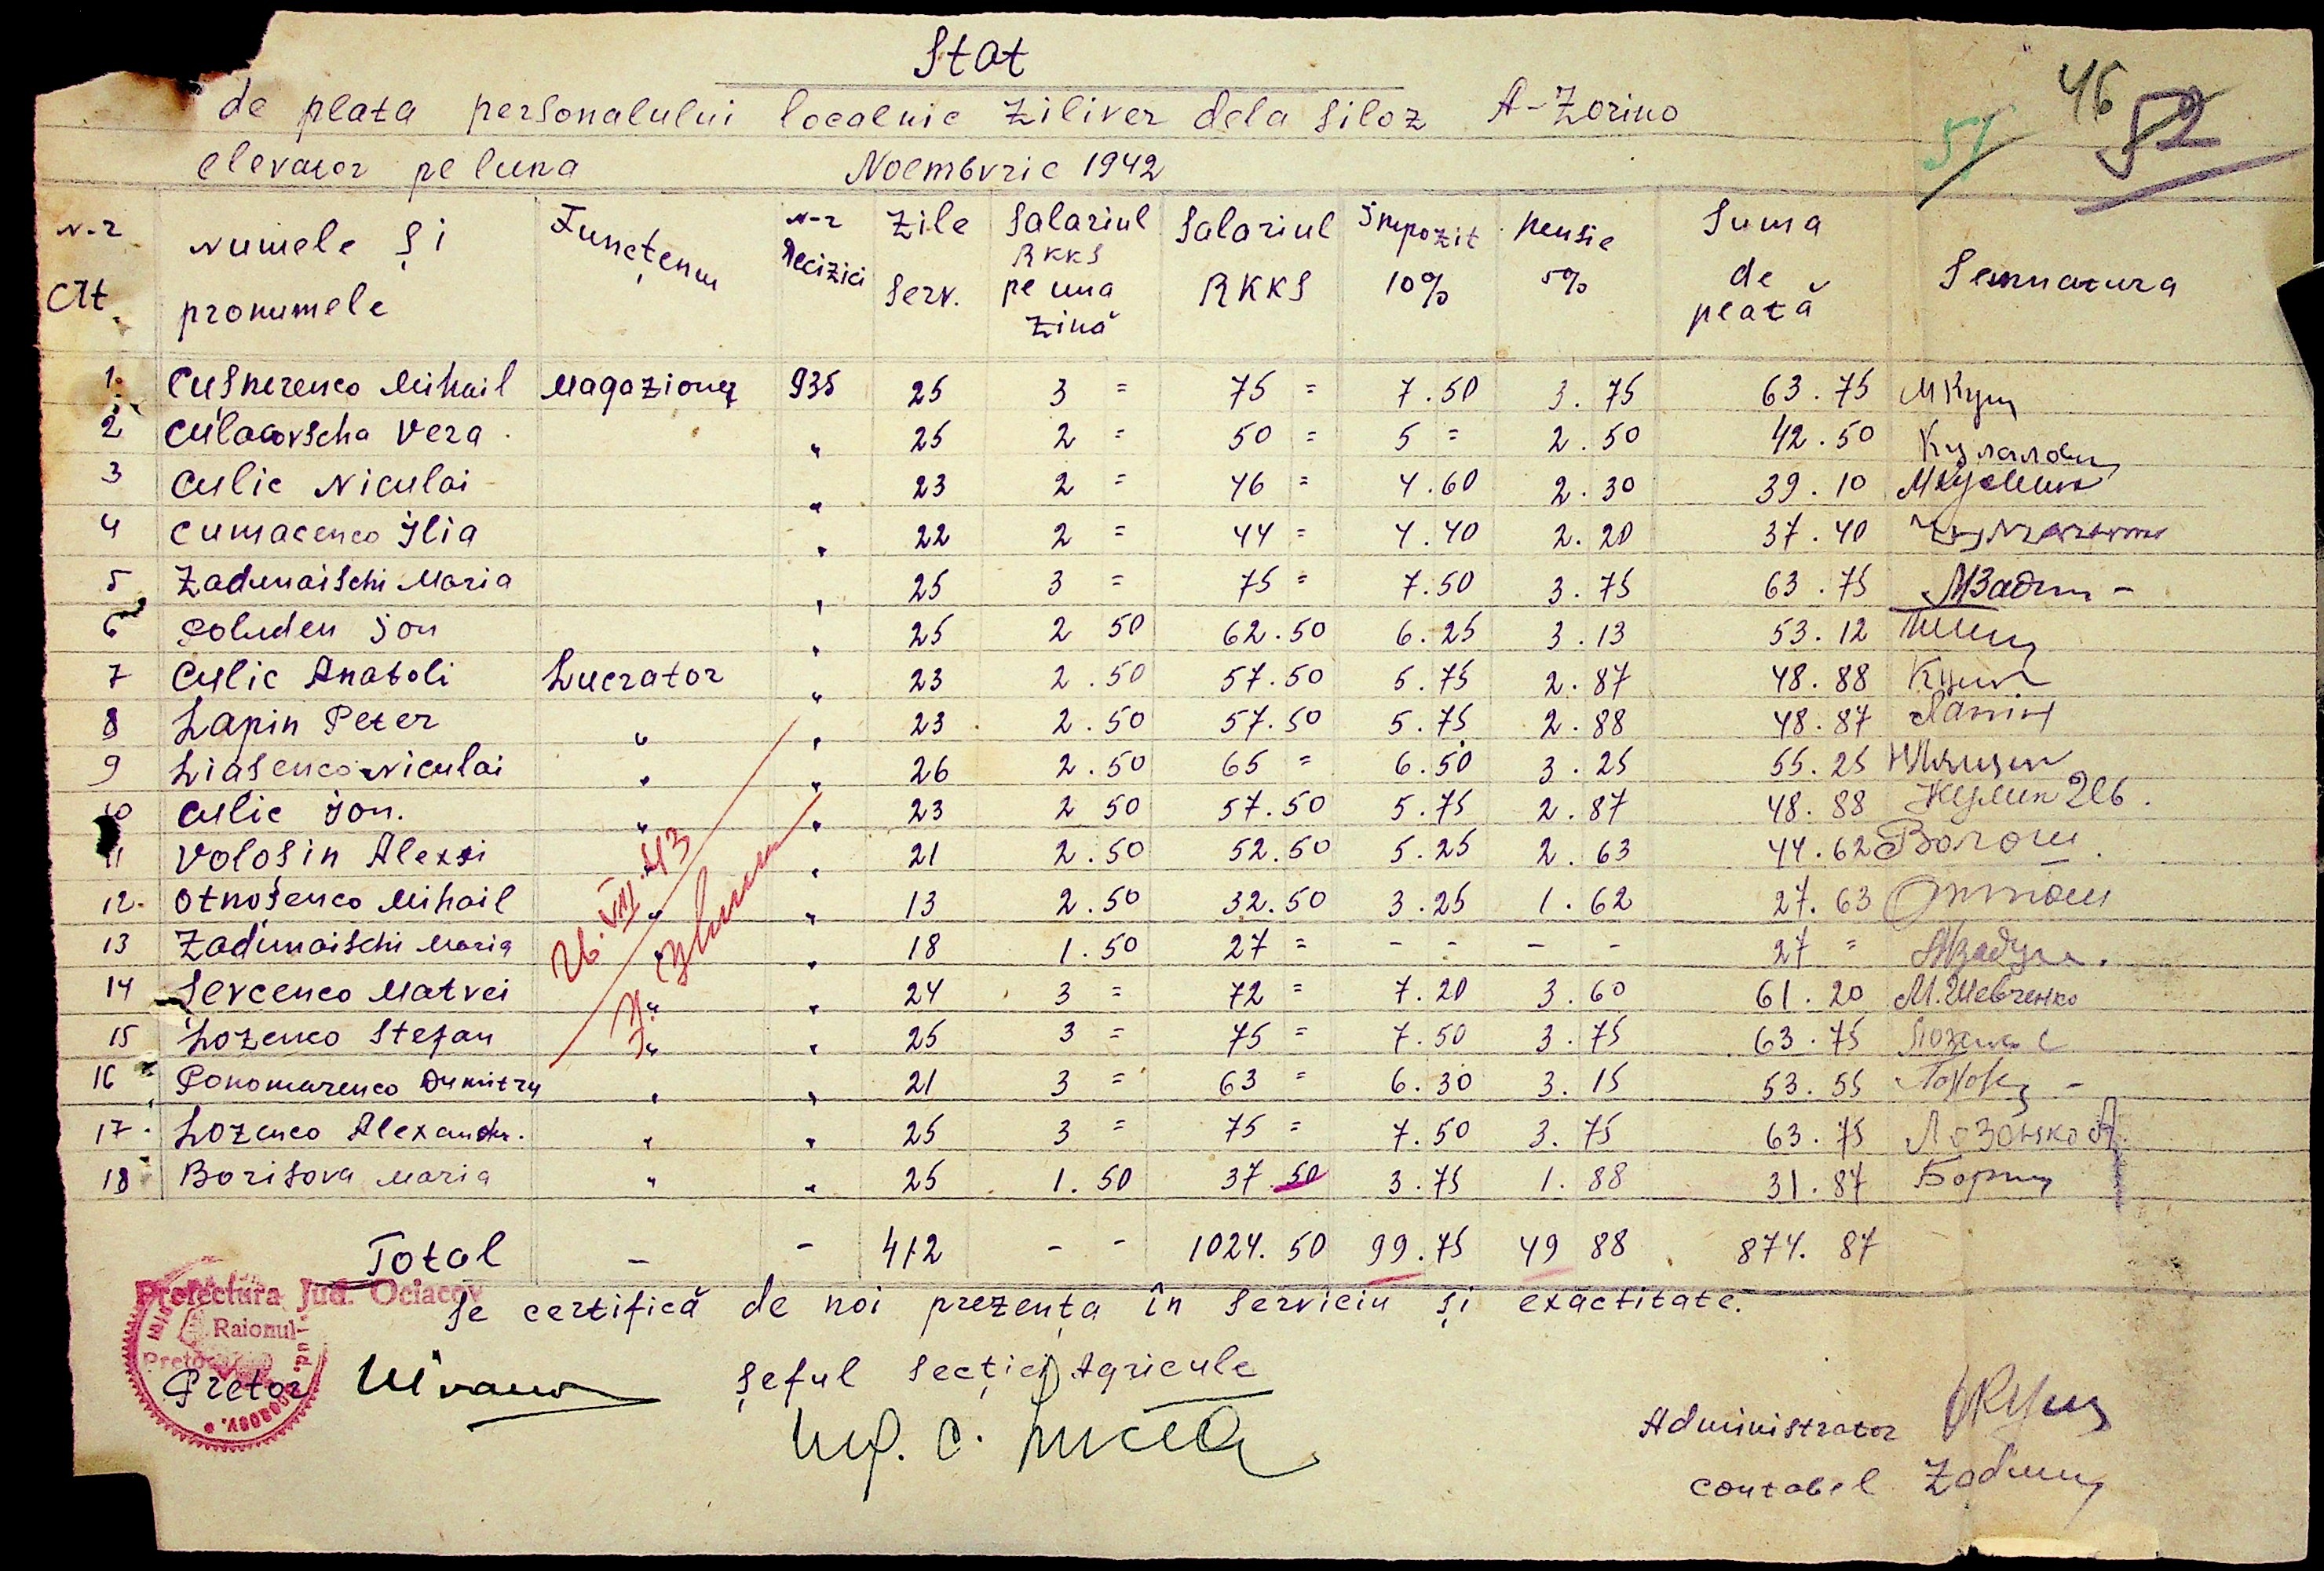 Stat
de plata personalului localnic ziliver dela siloz A-Zorino
elevator pe luna Noembvrie 1942
46
51 52
N-r Crt. Numele și pronumele Funcțenu N-r Decizici Zile Serv. Salariul RKKS pe una zină Salariul RKKS Impozit 10% Pensie 5% Suma de plată Semnatura
1. Cușnerenco Mihail Magazioner 935 25 3 = 75 = 7.50 3.75 63.75
2 Culacovscha Vera " 25 2 = 50 = 5 = 2.50 42.50
3 Culic Niculai " 23 2 = 46 = 4.60 2.30 39.10
4 Cumacenco Ilia " 22 2 = 44 = 4.40 2.20 37.40
5 Zadunaischi Maria " 25 3 = 75 = 7.50 3.75 63.75 МЗадун -
6 Ion " 25 2 50 62.50 6.25 3.13 53.12
7 Culic Anatoli Lucrator " 23 2.50 57.50 5.75 2.87 48.88
8 Lapin Peter " " 23 2.50 57.50 5.75 2.88 48.87 Лапин
9 Liasenco Niculai " " 26 2.50 65 = 6.50 3.25 55.25
10 Culic Ion. " " 23 2 50 57.50 5.75 2.87 48.88 Кулик
11 Volosin Alexei " 21 2.50 52.50 5.25 2.63 44.62 Волош
12. Otnosenco Mihail " " 13 2.50 32.50 3.25 1.62 27.63
13 Zadunaischi Maria " " 18 1.50 27 = - - - - 27 =
14 Sevcenco Matvei " " 24 3 = 72 = 7.20 3.60 61.20 М.Шевченко
15 Lozenco Stefan " " 25 3 = 75 = 7.50 3.75 63.75
16 Ponomarenco Dumitru " " 21 3 = 63 = 6.30 3.15 53.55
17. Lozenco Alexandr. " " 25 3 = 75 = 7.50 3.75 63.75 Лозенко А.
18 Borisova Maria " " 25 1.50 37.50 3.75 1.88 31.87
26.VIII.43
Total - - 412 - - 1024.50 99.75 49 88 874.87
Prefectura Jud. Ociacov
Raionul
Se certifică de noi prezența în serviciu și exactitate.
Pretor
Șeful Secției Agricule
Ing. C.
Administrator
Contabel